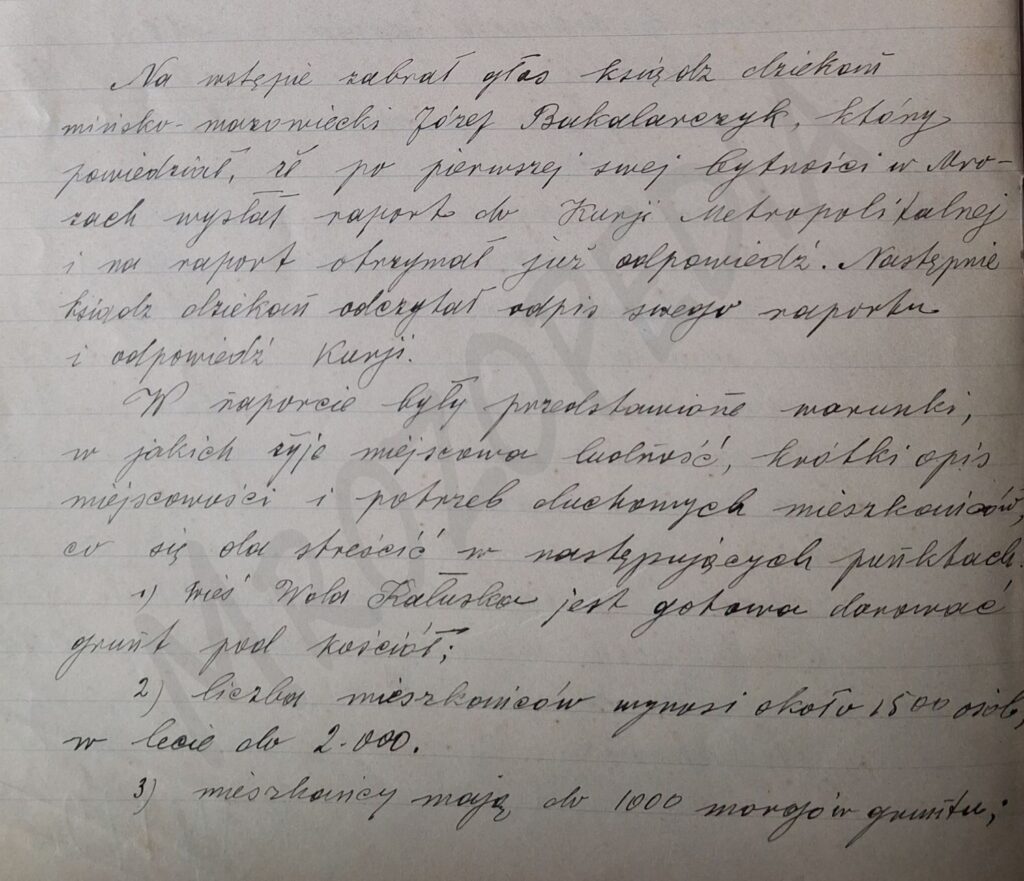 Na wstępie zabrał głos ksiądz dziekan
mińsko-mazowiecki Józef Bakalarczyk, który
powiedział, że po pierwszej swej bytności w Mro-
zach wysłał raport do Kurji Metropolitalnej
i na raport otrzymał już odpowiedź. Następnie
ksiądz dziekan odczytał odpis swego raportu
i odpowiedź Kurji.
W raporcie były przedstawione warunki,
w jakich żyje miejscowa ludność, krótki opis
miejscowości i potrzeb duchowych mieszkańców,
co się da streścić w następujących punktach.
1) Wieś Wola Rafałska jest gotowa darować
grunt pod kościół;
2) liczba mieszkańców wynosi około 1500 osób,
w lecie do 2.000.
3) mieszkańcy mają do 1000 morgów gruntu;
MROZOPEDIA